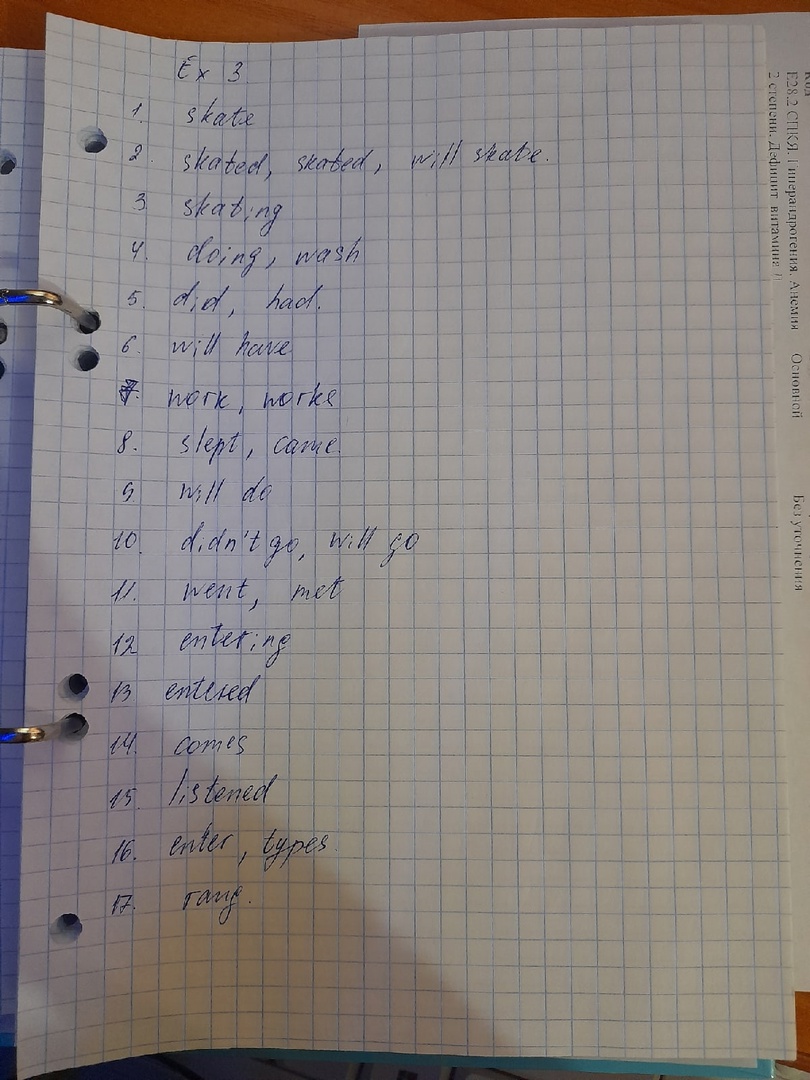 Ex 3
1. skate
2. skated, skated, will skate.
3 skating
4. doing, wash
5. did, had.
6. will have
7. work, works
8. slept, came.
9. will do
10. didn't go, will go
11. went, met
12 entering
13 entered
14. comes
15. listened
16. enter, types.
17. rang.
Код
E28.2 СПКЯ. Гиперандрогения. Анемия
2 степени. Дефицит витамина
Основной
Без уточнения